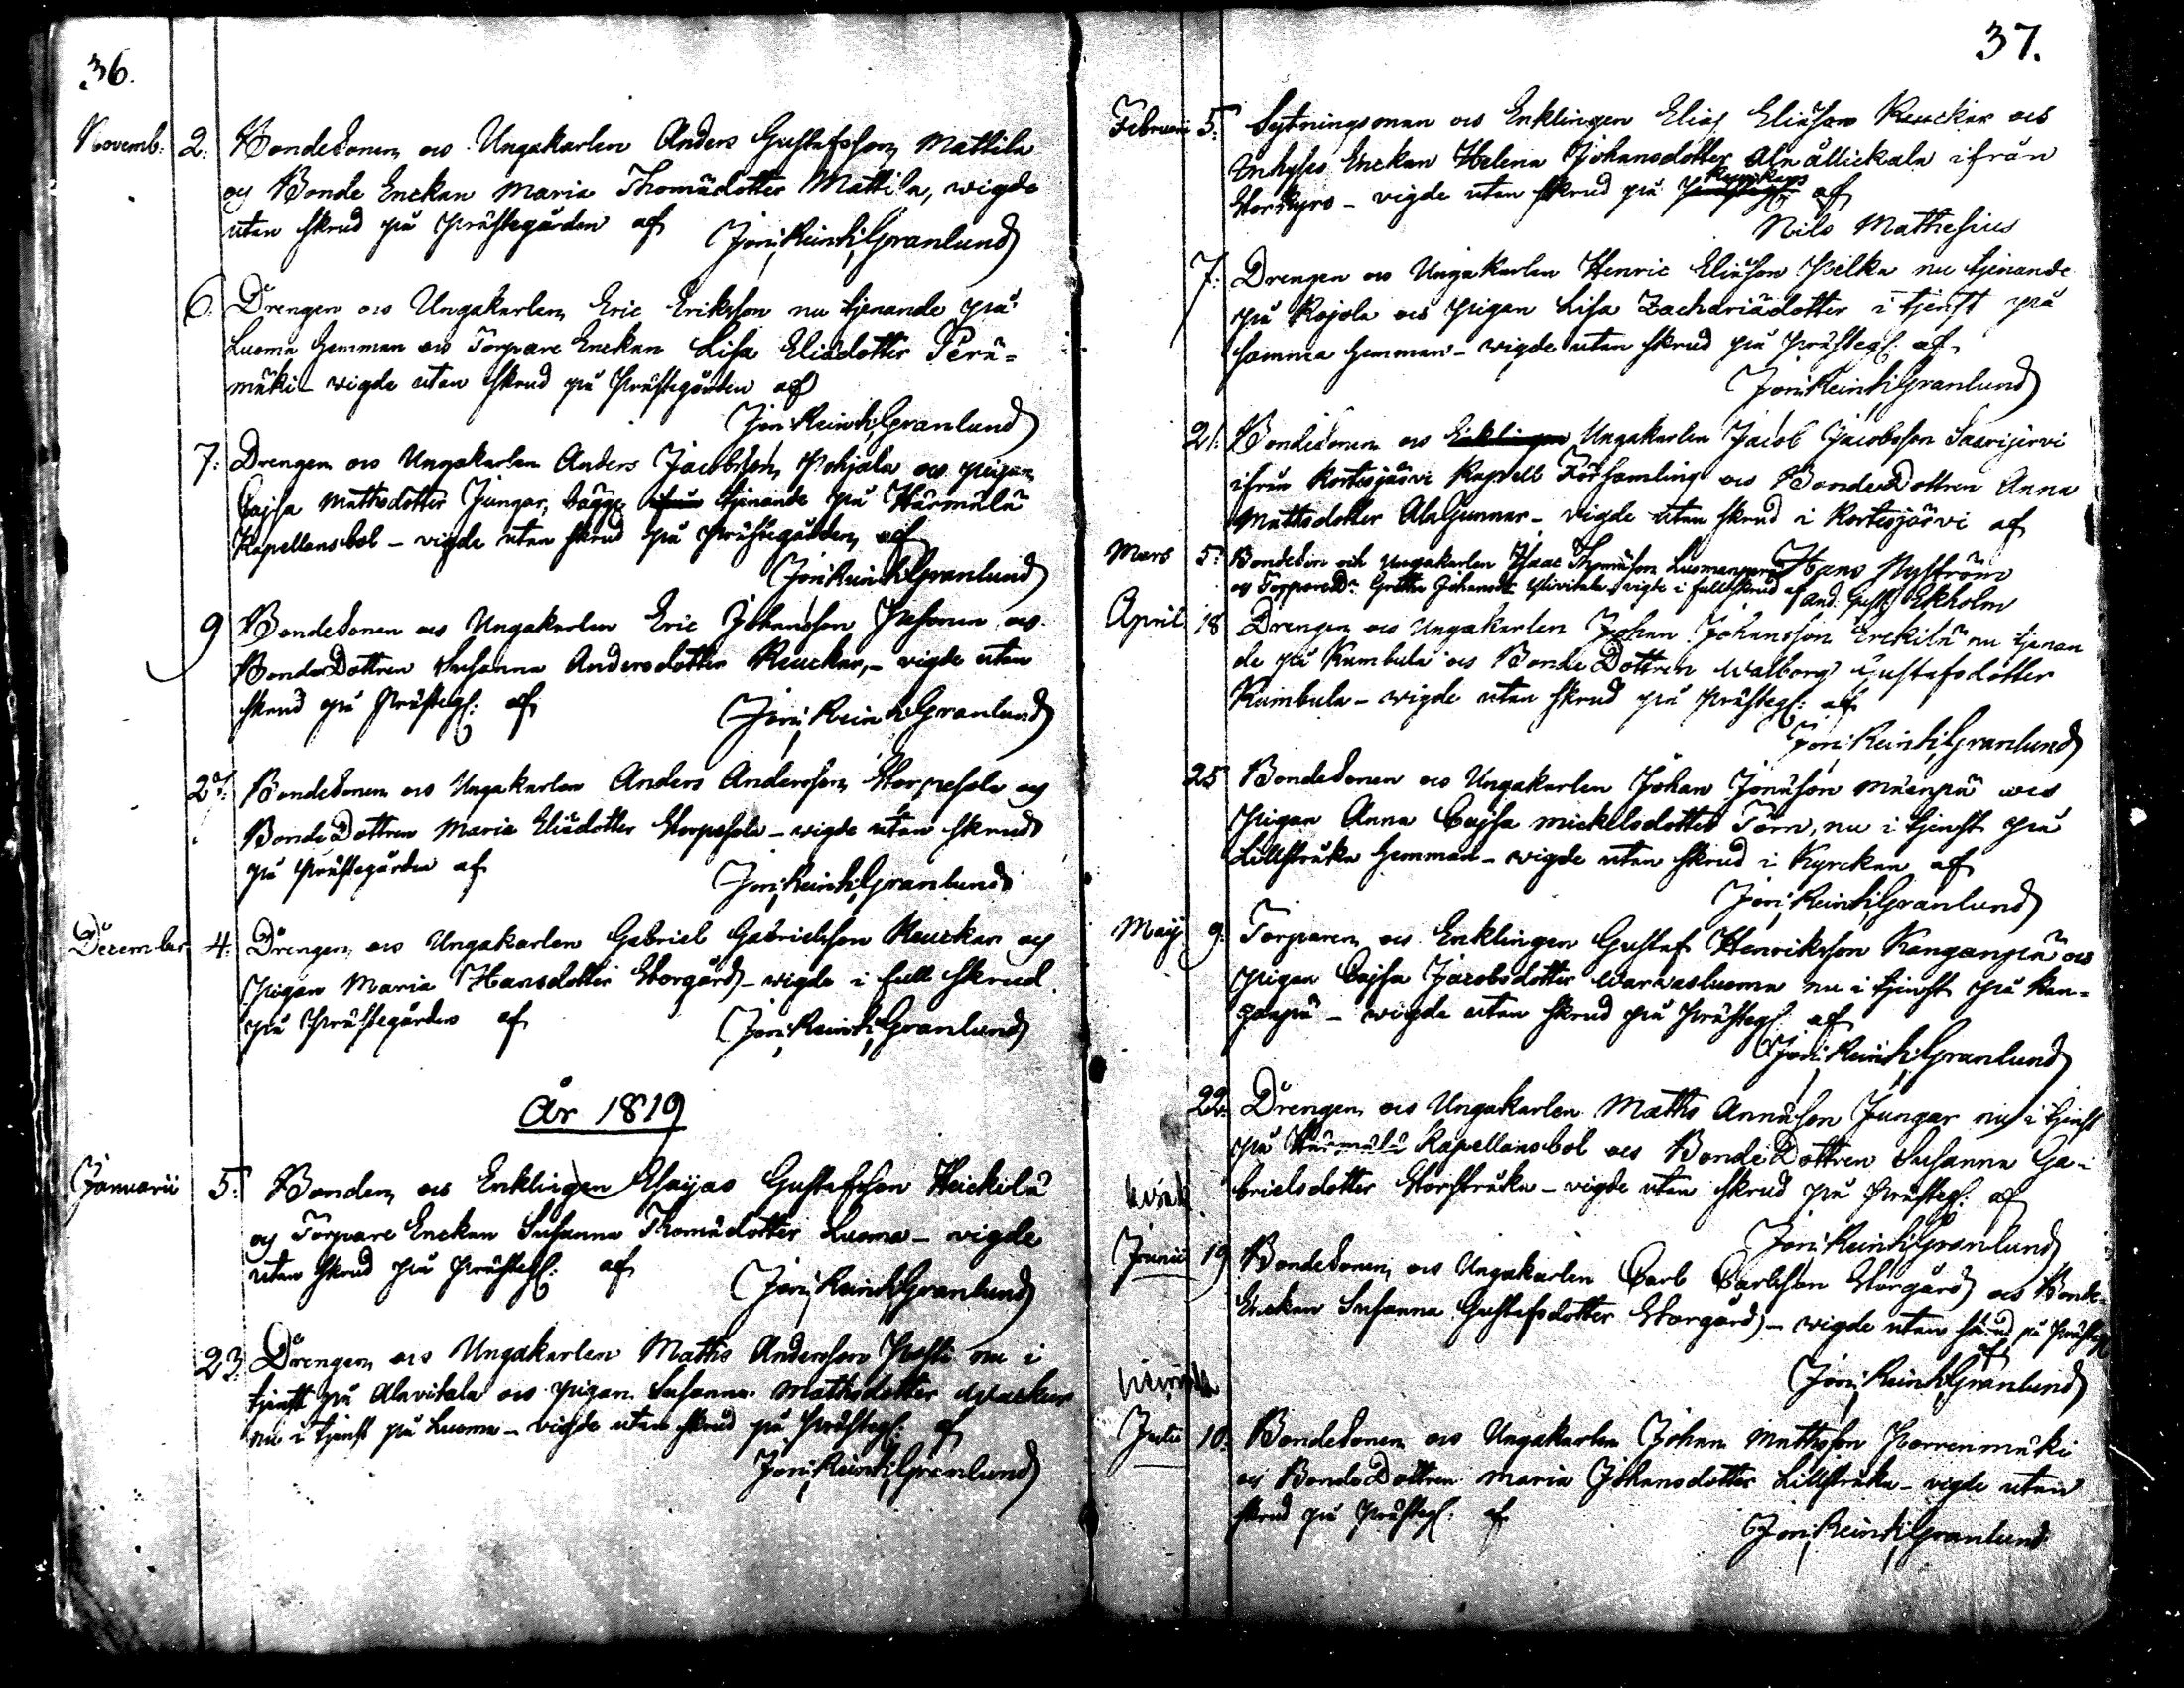 36.
Novemb: 2: BondeSonen ocs Ungakarlen Anders Gustafsson Mattila
og Bonde Enckan Maria Thomädotter Mattila, wigde
utan skrud på Prästegården af
Jon: Rein: h: Granlund
6. Drengen ocs Ungakarlen Eric Eriksson nu tjenande på
Luoma hemman ocs Torpare Enckan Lisa Eliädotter Perä=
mäki - vigde utan skrud på Prästegården af
Jon: Rein: h: Granlund
7: Drengen ocs Ungakarlen Anders Jacobsson Pohjala ocs pigan
Cajsa Mathsdotter Jungar, bägge tjenande på Härmälä
Kapellansbol - vigde utan skrud på Prästegården af
Jon: Rein: h: Granlund
9 BondeSonen ocs Ungakarlen Eric Johansson Pesonen ocs
BondeDottren Susanna Andersdotter Reuckar, - vigde utan
skrud på Prästeg: af
Jon: Rein: h: Granlund
27: BondeSonen ocs Ungakarlen Anders Andersson Storpesola og
BondeDottren Maria Eliädotter Storpesola - vigde utan skrud
på Prästegården af
Jon: Rein: h: Granlund
December 4: Drengen ocs Ungakarlen Gabriel Gabrielsson Reuckar og
Pigan Maria Hansdotter Storgård - vigde i full skrud
på Prästegården af
Jon: Rein: h: Granlund
År 1819
Januarii 5: Bonden ocs Enklingen Esajas Gustafsson Heickilä
og Torpare Enckan Susanna Thomädotter Luoma - vigde
utan skrud på Prästeg: af
Jon: Rein: h: Granlund
23: Drengen ocs Ungakarlen Matts Andersson Pesti nu i
tjenst på Alavitala ocs pigan Susanna Mathsdotter Wackur
nu i tjenst på Luoma - vigde utan skrud på Prästeg: af
Jon: Rein: h: Granlund
37.
Februarii 5: Sytningsman ocs Enklingen Elias Eliäson Reuckar ocs
Inhyses Enckan Helena Johansdotter Ala ållickala ifrån
Storkyro - vigde utan skrud på af
Nils Mathesius
7: Drengen ocs Ungakarlen Henric Eliäson Pelka nu tjenande
på Kojola ocs pigan Lisa Zachariädotter i tjenst på
samma hemman - vigde utan skrud på Prästeg: af
Jon: Rein: h: Granlund
21: BondeSonen ocs Enklingen Ungakarlen Jacob Jacobsson Saarijervi
ifrån Kortesjärvi Kapell Församling ocs BondeDottren Anna
Mattsdotter AlaJunnar - vigde utan skrud i Kortesjärvi af
Hans Nyström
Mars 5: BondeSon och Ungakarlen Isaac Thomäson Luomanperä
og TorpareD:r Gretha Johansdr Ylivitala vigde i full skrud af And. Gust: Ekholm
April 18 Drengen ocs Ungakarlen Johan Johansson Erckilä nu tjenan
de på Kumbula ocs BondeDottren Walborg Gustafsdotter
Kumbula - vigde utan skrud på Prästeg: af
Jon: Rein: h: Granlund
25 BondeSonen ocs Ungakarlen Johan Jonäson Mäenpä ocs
Pigan Anna Cajsa Mickelsdotter Törn, nu i tjenst på
Lillstråka hemman - vigde utan skrud i Kyrckan af
Jon: Rein: h: Granlund
Maij 9: Torparen ocs Enklingen Gustaf Henriksson Kanganpä ocs
Pigan Cajsa Jacobsdotter Warwasluoma nu i tjenst på Kan=
ganpä - vigde utan skrud på Prästeg: af
Jon: Rein: h: Granlund
22: Drengen ocs Ungakarlen Matts Annäson Jungar nu i tjenst
på Härmälä Kapellansbol ocs BondeDottren Susanna Ga=
brielsdotter Storstråka - vigde utan skrud på Prästeg: af
Jon: Rein: h: Granlund
Junii 19 BondeSonen ocs Ungakarlen Carl Carlsson Storgård ocs Bonde=
Enckan Susanna Gustafsdotter Storgård - vigde utan skrud på Prästeg
af
Jon: Rein: h: Granlund
Julii 10: BondeSonen ocs Ungakarlen Johan Mathsson Porrenmäki
og BondeDottren Maria Johansdotter Lillstråka - vigde utan
skrud på Prästeg: af
Jon: Rein: h: Granlund